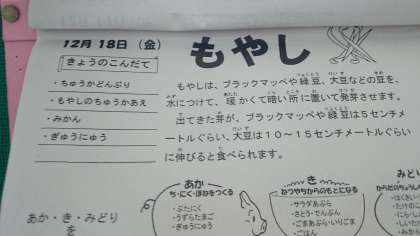 12月 18日 (金)
もやし
きょうのこんだて
・ちゅうかどんぶり
・もやしのちゅうかあえ
・みかん
・ぎゅうにゅう
もやしは、ブラックマッペや緑豆、大豆などの豆を、
水につけて、暖かくて暗い所に置いて発芽させます。
出てきた芽が、ブラックマッペや緑豆は5センチメ
ートルぐらい、大豆は10～15センチメートルぐらい
に伸びると食べられます。
あか・き・みどり
を
あか
ち・にく・ほねをつくる
・ぶたにく
・うずらたまご
・ぎゅうにゅう
き
ねつやちからのもとになる
・サラダあぶら
・さとう・でんぷん
・ごまあぶら・いりごま
・ごはん
みど
からだのちょう